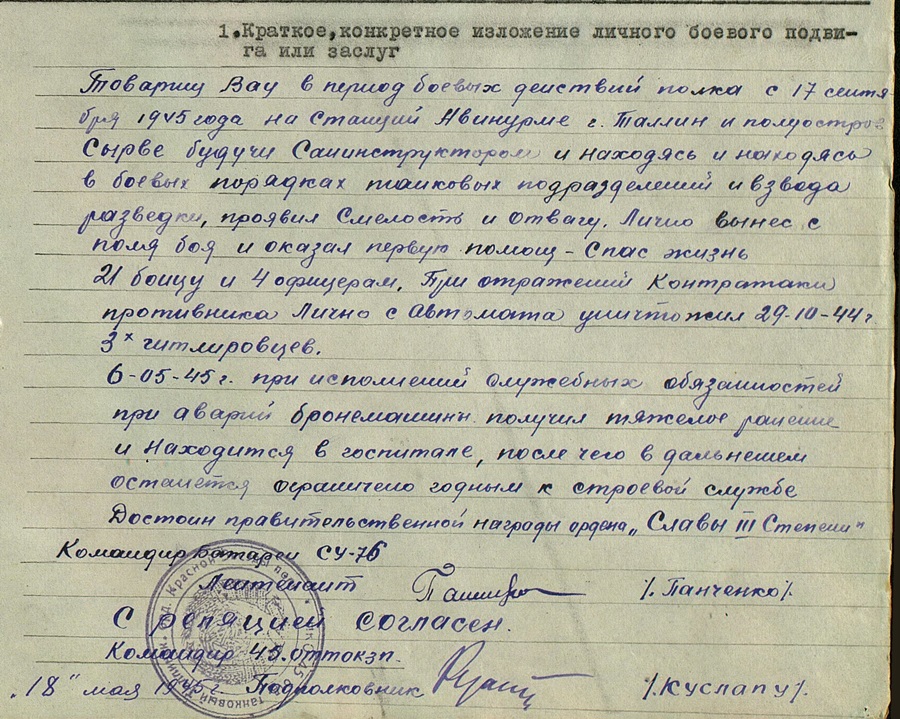 1.Краткое,конкретное изложение личного боевого подви-
га или заслуг
Товарищ Вау в период боевых действий полка с 17 сентя-
бря 1945 года на станций Авинурме г. Таллин и полуостров
Сырве будучи Санинструктором и находясь и находясь
в боевых порядках танковых подразделений и взвода
разведки, проявил Смелость и отвагу. Лично вынес с
поля боя и оказал первую помощ - Спас жизнь
21 бойцу и 4 офицерам. При отражений Контратаки
противника Лично с Автомата уничтожил 29-10-44 г
3х гитлировцев.
6-05-45 г. при исполнений служебных обязанностей
при аварий бронемашины получил тяжелое ранение
и Находится в госпитале, после чего в дальнешем
останется ограничено годным к строевой службе
Достоин правительственной награды ордена „Славы III Степени"
Командир батареи СУ-76
Лейтенант /. Панченко/.
С реляцией согласен.
Командир 45. оттокзп.
„18" мая 1945 г. Подполковник /.Куслапу/.